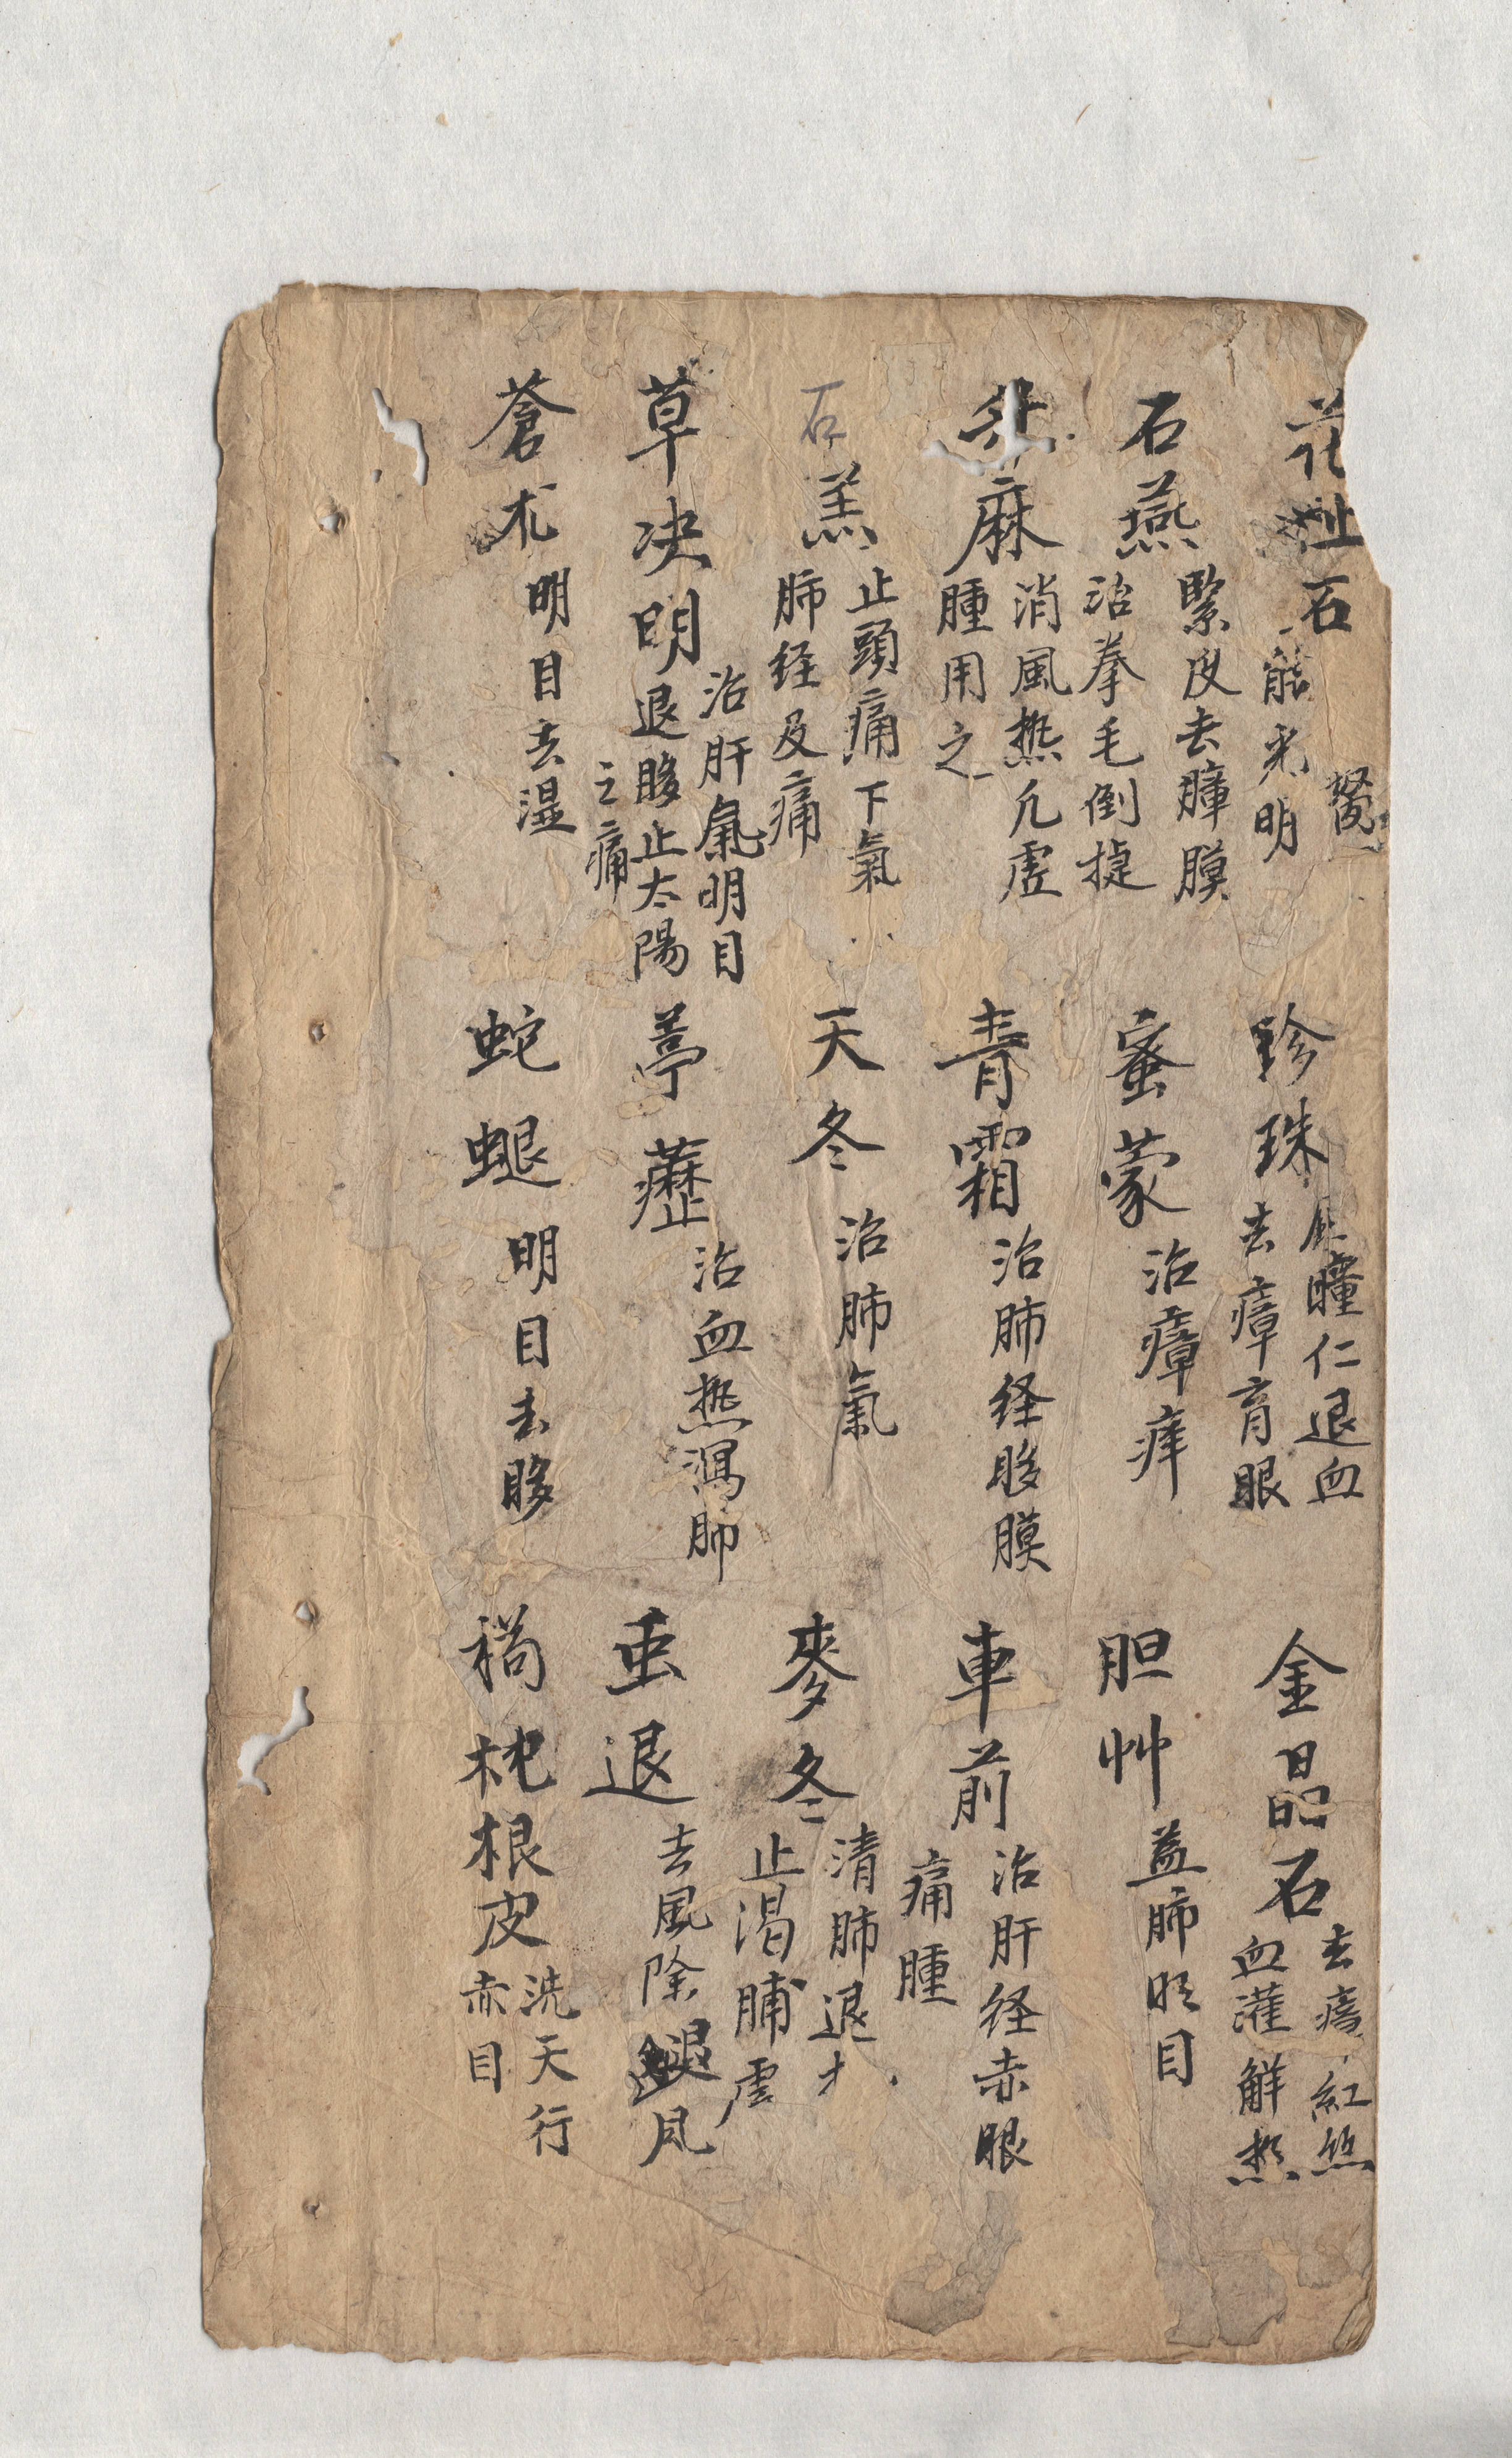 花 石
能光明
石燕
緊皮去膜膜
治拳毛倒捷
麻
消風热凣虛
腫用之
石羔
止頭痛下氣
肺经及痛
草决明
治肝氣明目
退眵止太陽
之痛
蒼朮
明目去湿
珍珠
瞳仁退血
去瘴肓眼
蜜蒙
治瘴痒
青霜
治肺经眵膜
天冬
治肺氣
葶藶
治血热瀉肺
蛇螁
明目去眵
金晶石
去 紅丝
血灌解热
胆艸
益肺明目
車前
治肝经赤眼
痛腫
麥冬
清肺退
止渴脯虛
虫退
去風除 風
枕根皮
洗天行
赤目